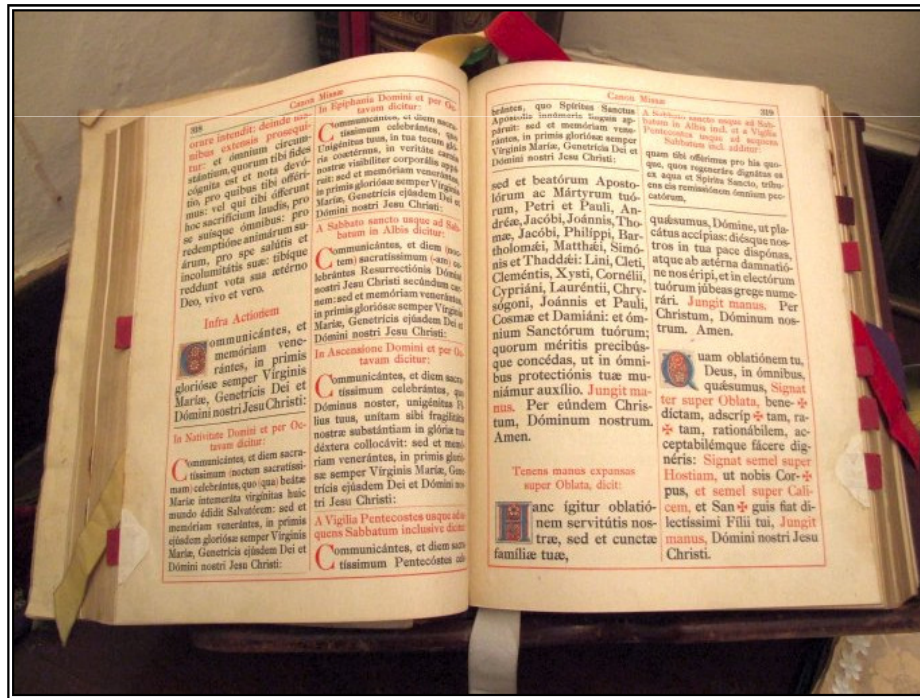 Canon Missæ
318
orare intendit: deinde ma-
nibus extensis prosequi-
tur: et ómnium circum-
stántium, quorum tibi fides
cógnita est et nota devó-
tio, pro quibus tibi offéri-
mus: vel qui tibi ófferunt
hoc sacrifícium laudis, pro
se suisque ómnibus: pro
redemptióne animárum su-
árum, pro spe salútis et
incolumitátis suæ: tibíque
reddunt vota sua ætérno
Deo, vivo et vero.
Infra Actionem
Communicántes, et
memóriam vene-
rántes, in primis
gloriósæ semper Vírginis
Maríæ, Genetrícis Dei et
Dómini nostri Jesu Christi:
In Nativitate Domini et per Oc-
tavam dicitur:
Communicántes, et diem sacra-
tíssimum (noctem sacratíssi-
mam) celebrántes, quo (qua) beátæ
Maríæ intemeráta virgínitas huic
mundo édidit Salvatórem: sed et
memóriam venerántes, in primis
ejúsdem gloriósæ semper Vírginis
Maríæ, Genetrícis ejúsdem Dei et
Dómini nostri Jesu Christi:
In Epiphania Domini et per Oc-
tavam dicitur:
Communicántes, et diem sacra-
tíssimum celebrántes, quo
Unigénitus tuus, in tua tecum gló-
ria coætérnus, in veritáte carnis
nostræ visibíliter corporális appá-
ruit: sed et memóriam venerántes,
in primis gloriósæ semper Vírginis
Maríæ, Genetrícis ejúsdem Dei et
Dómini nostri Jesu Christi:
A Sabbato sancto usque ad Sab-
batum in Albis dicitur:
Communicántes, et diem (noc-
tem) sacratíssimum (-am) ce-
lebrántes Resurrectiónis Dómini
nostri Jesu Christi secúndum car-
nem: sed et memóriam venerántes,
in primis gloriósæ semper Vírginis
Maríæ, Genetrícis ejúsdem Dei et
Dómini nostri Jesu Christi:
In Ascensione Domini et per Oc-
tavam dicitur:
Communicántes, et diem sacra-
tíssimum celebrántes, quo
Dóminus noster, unigénitus Fí-
lius tuus, unítam sibi fragilitátis
nostræ substántiam in glóriæ tuæ
déxtera collocávit: sed et memó-
riam venerántes, in primis glorió-
sæ semper Vírginis Maríæ, Gene-
trícis ejúsdem Dei et Dómini no-
stri Jesu Christi:
A Vigilia Pentecostes usque ad
quens Sabbatum inclusive dicitur:
Communicántes, et diem sacra-
tíssimum Pentecóstes cele-
Canon Missæ
319
brántes, quo Spíritus Sanctus
Apóstolis innúmeris linguis ap-
páruit: sed et memóriam vene-
rántes, in primis gloriósæ semper
Vírginis Maríæ, Genetrícis Dei et
Dómini nostri Jesu Christi:
sed et beatórum Aposto-
lórum ac Mártyrum tuó-
rum, Petri et Pauli, An-
dréæ, Jacóbi, Joánnis, Tho-
mæ, Jacóbi, Philíppi, Bar-
tholomǽi, Matthǽi, Simó-
nis et Thaddǽi: Lini, Cleti,
Cleméntis, Xysti, Cornélii,
Cypriáni, Lauréntii, Chry-
sógoni, Joánnis et Pauli,
Cosmæ et Damiáni: et óm-
nium Sanctórum tuórum;
quorum méritis precibús-
que concédas, ut in ómni-
bus protectiónis tuæ mu-
niámur auxílio. Jungit ma-
nus. Per eúndem Chris-
tum, Dóminum nostrum.
Amen.
Tenens manus expansas
super Oblata, dicit:
Hanc ígitur oblatió-
nem servitútis nos-
træ, sed et cunctæ
famíliæ tuæ,
A Sabbato sancto usque ad Sab-
batum in Albis incl. et a Vigilia
Pentecostes usque ad sequens
Sabbatum incl. additur:
quam tibi offérimus pro his quo-
que, quos regeneráre dignátus es
ex aqua et Spíritu Sancto, tríbu-
ens eis remissiónem ómnium pec-
catórum,
quǽsumus, Dómine, ut pla-
cátus accípias: diésque nos-
tros in tua pace dispónas,
atque ab ætérna damnatió-
ne nos éripi, et in electórum
tuórum júbeas grege nume-
rári. Jungit manus. Per
Christum, Dóminum nos-
trum. Amen.
Quam oblatiónem tu,
Deus, in ómnibus,
quǽsumus, Signat
ter super Oblata, bene- ✠
díctam, adscríp ✠ tam, ra-
✠ tam, rationábilem, ac-
ceptabilémque fácere dig-
néris: Signat semel super
Hostiam, ut nobis Cor- ✠
pus, et semel super Cali-
cem, et San ✠ guis fiat di-
lectíssimi Fílii tui, Jungit
manus, Dómini nostri Jesu
Christi.